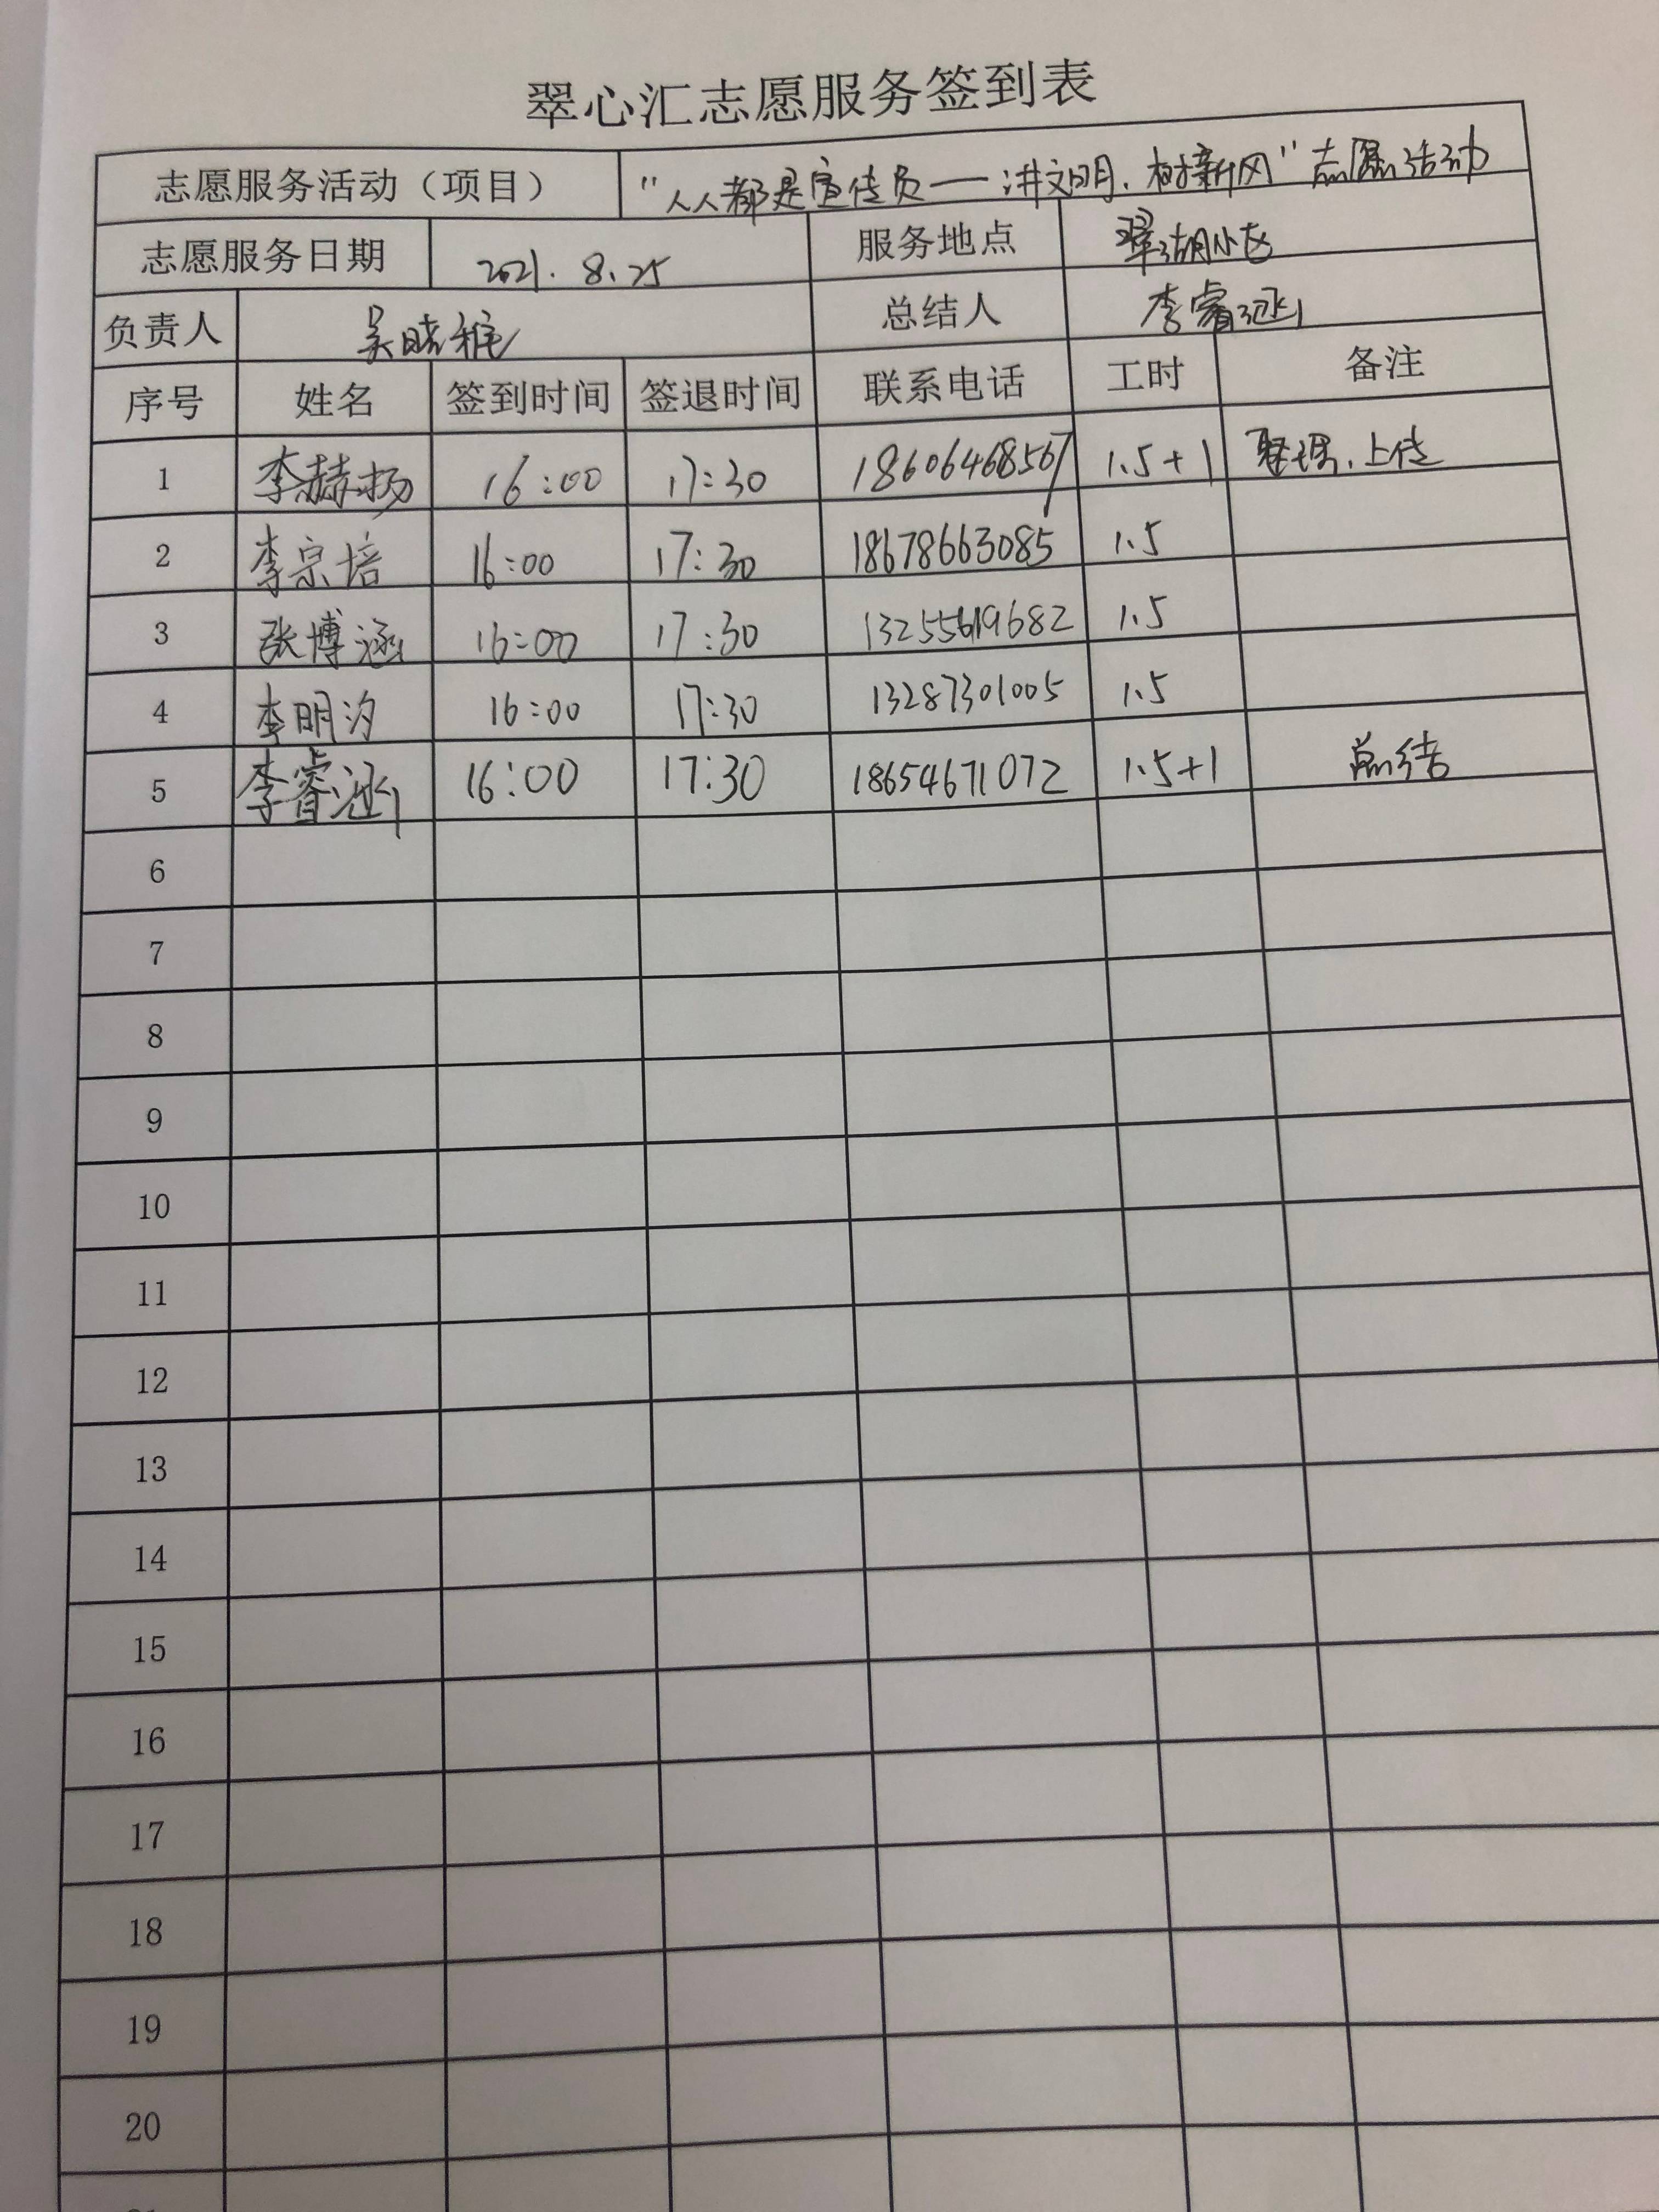 翠心汇志愿服务签到表
志愿服务活动（项目） “人人都是宣传员——讲文明、树新风”志愿活动
志愿服务日期 2021.8.25 服务地点 翠湖小区
负责人 吴晓稚 总结人 李睿涵
序号 姓名 签到时间 签退时间 联系电话 工时 备注
1 李赫扬 16:00 17:30 18606468567 1.5+1 整理、上传
2 李宗培 16:00 17:30 18678663085 1.5
3 张博涵 16:00 17:30 1.5
4 李明汐 16:00 17:30 13287301005 1.5
5 李睿涵 16:00 17:30 18654671072 1.5+1 总结
6
7
8
9
10
11
12
13
14
15
16
17
18
19
20